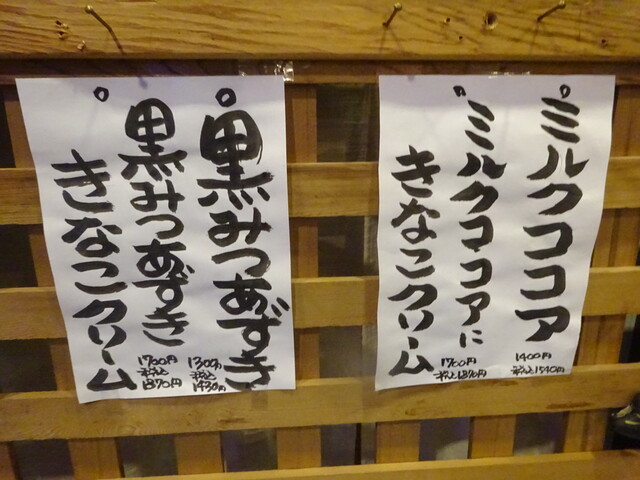 ミルクココア
1400円
税込1540円
ミルクココアに
きなこクリーム
1700円
税込1870円
黒みつあずき
1300円
税込
1430円
黒みつあずき
きなこクリーム
1700円
税込
1870円